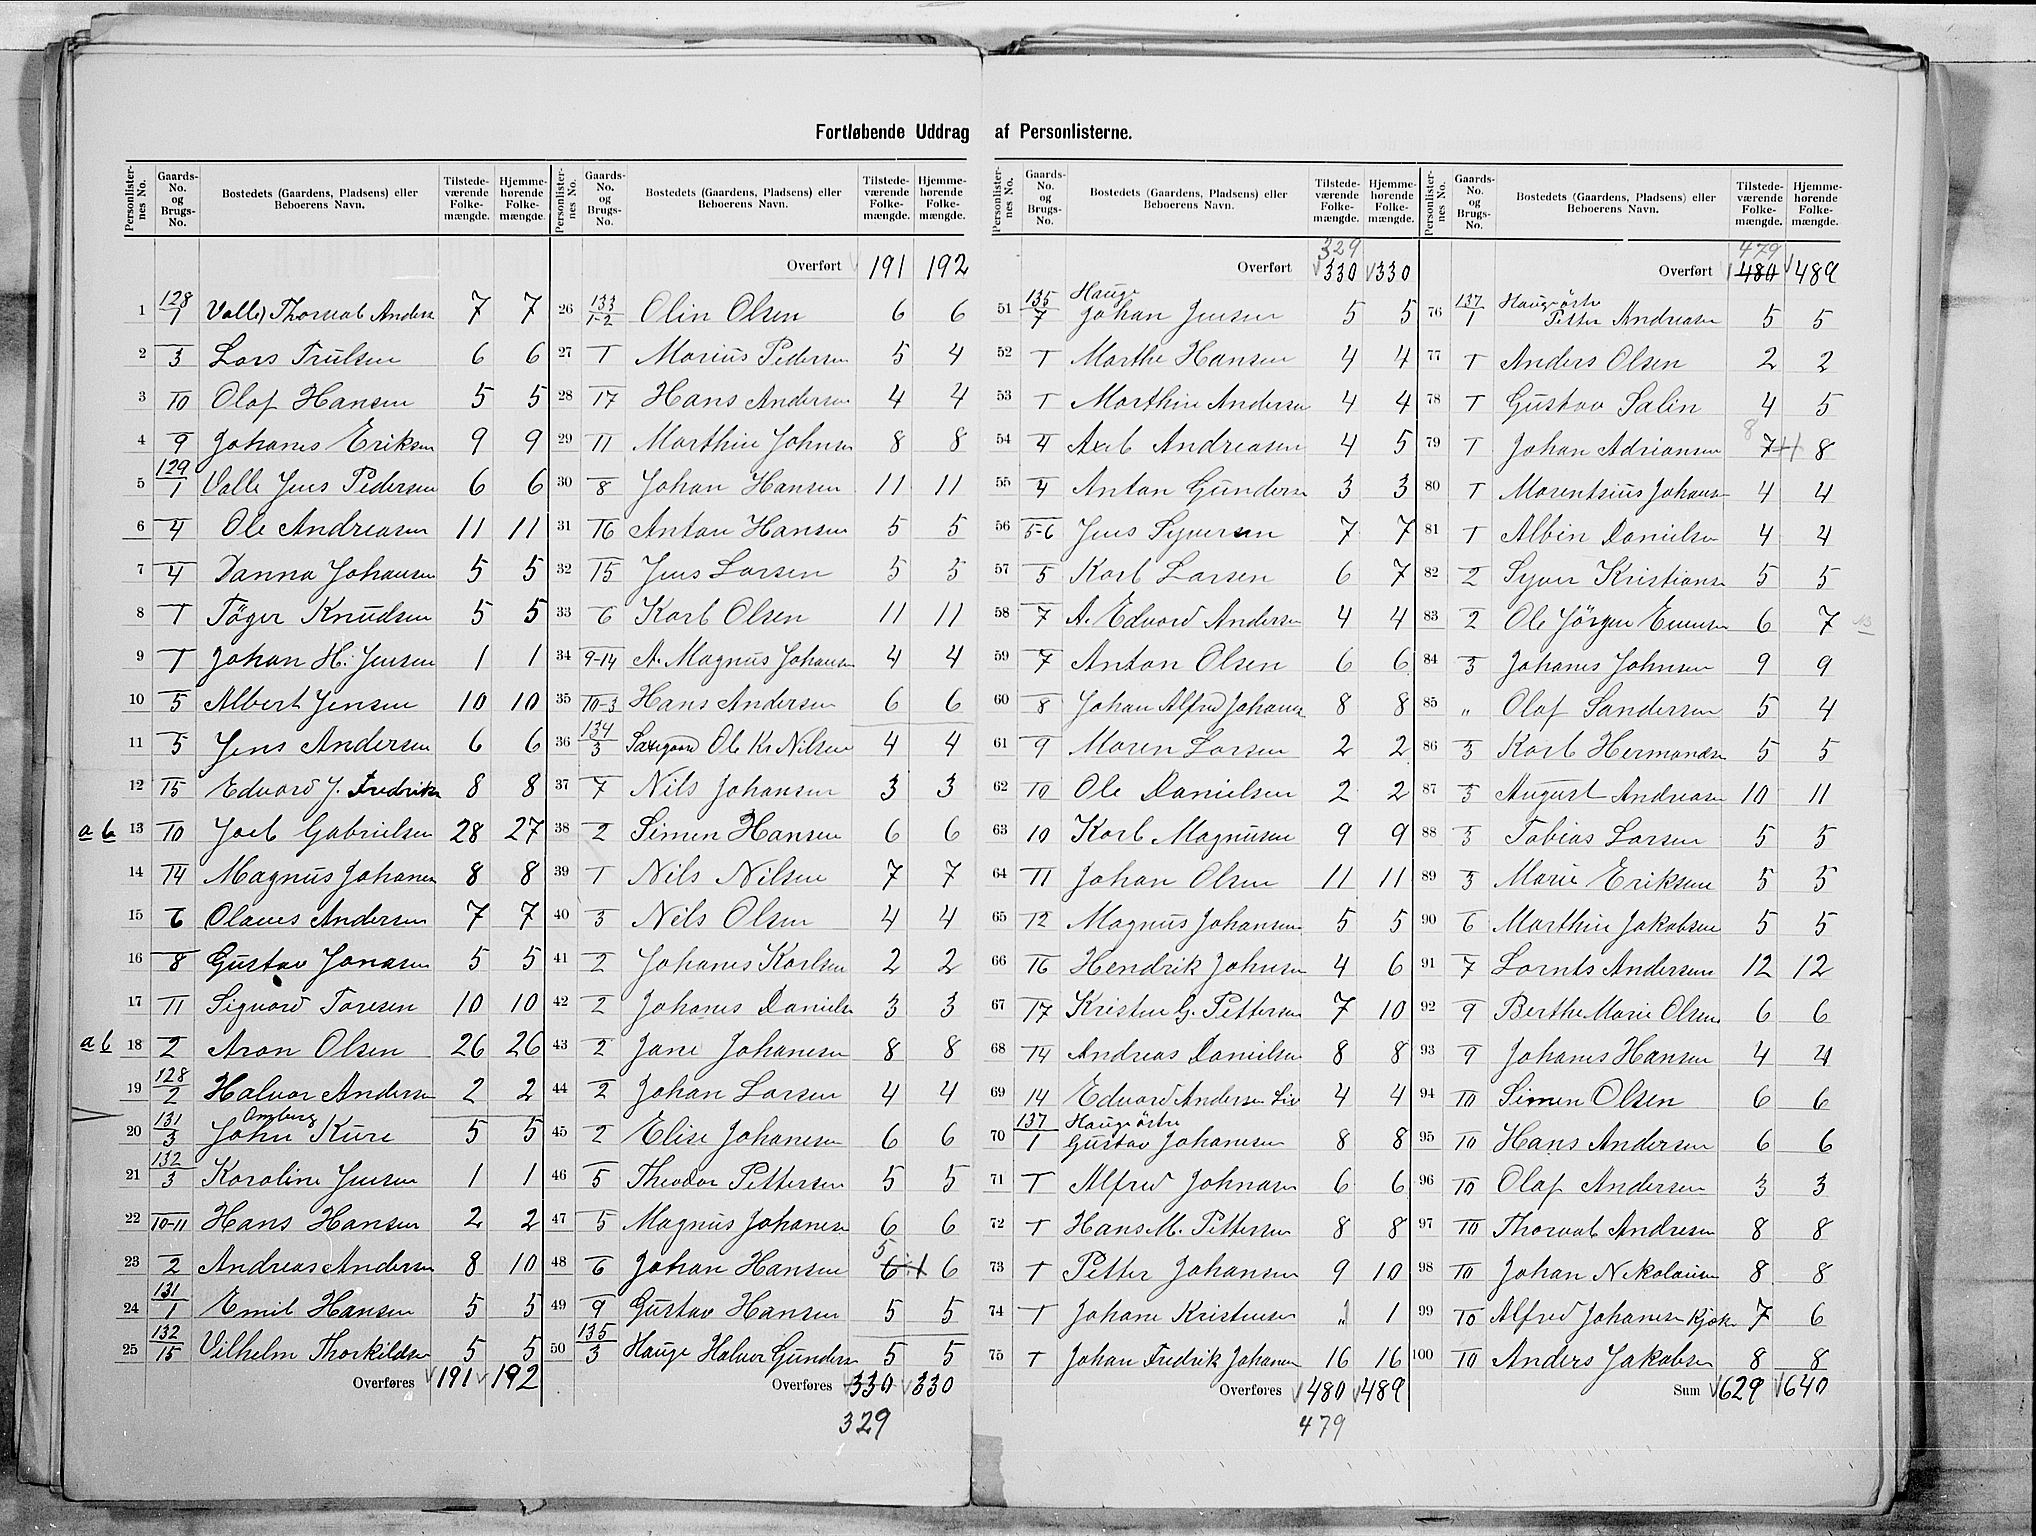 Fortløbende Uddrag af Personlisterne.
Personlister-nes No. Gaards-No. og Brugs-No. Bostedets (Gaardens, Pladsens) eller Beboerens Navn. Tilstede-værende Folke-mængde. Hjemme-hørende Folke-mængde.
Overført 191 192
1 128/1 Valle) Thorvald Anders 7 7
2 3 Lars Trulsen 6 6
3 10 Olaf Hansen 5 5
4 9 Johans Eriksen 9 9
5 129/1 Valle Jens Pedersen 6 6
6 4 Ole Andreasen 11 11
7 4 Danna Johansen 5 5
8 1 Töger Knudsen 5 5
9 1 Johan H. Jensen 1 1
10 5 Albert Jensen 10 10
11 5 Jens Andersen 6 6
12 15 Edvard J. Fredriks 8 8
a b 13 10 Joel Gabrielsen 28 27
14 14 Magnus Johanes 8 8
15 6 Olaves Andersen 7 7
16 8 Gustav Jonasen 5 5
17 11 Sigvard Toresen 10 10
a b 18 2 Aron Olsen 26 26
19 128/2 Halvor Anders 2 2
20 131/3 Omberg John Kure 5 5
21 132/3 Karoline Jensen 1 1
22 10-11 Hans Hansen 2 2
23 2 Andreas Andersen 8 10
24 131/1 Emil Hansen 5 5
25 132/15 Vilhelm Thorkildsen 5 5
Overføres 191 192
26 133/1-2 Olin Olsen 6 6
27 1 Marius Pedersen 5 4
28 17 Hans Andersen 4 4
29 11 Marthin Johnsen 8 8
30 8 Johan Hansen 11 11
31 16 Anton Hansen 5 5
32 15 Jens Larsen 5 5
33 6 Karl Olsen 11 11
34 9-14 A. Magnus Johansen 4 4
35 10-3 Hans Andersen 6 6
36 134/3 Saxegaard Ole Kr Nilsen 4 4
37 7 Nils Johansen 3 3
38 2 Simen Hansen 6 6
39 1 Nils Nilsen 7 7
40 3 Nils Olsen 4 4
41 2 Johanes Karlsen 2 2
42 2 Johanes Daniels 3 3
43 2 Jane Johanesen 8 8
44 2 Johan Larsen 4 4
45 2 Elise Johanesen 6 6
46 5 Theodor Pettersen 5 5
47 5 Magnus Johanes 6 6
48 6 Johan Hansen 5 6÷1 6
49 9 Gustav Hansen 5 5
50 135/3 Hauge Halvor Gunders 5 5
Overføres 330 330
329
Personlister-nes No. Gaards-No. og Brugs-No. Bostedets (Gaardens, Pladsens) eller Beboerens Navn. Tilstede-værende Folke-mængde. Hjemme-hørende Folke-mængde.
329
Overført 330 330
51 135/7 Hauge Johan Jensen 5 5
52 1 Marthe Hansen 4 4
53 1 Marthin Andersen 4 4
54 4 Axel Andreasen 4 5
55 4 Anton Gunders 3 3
56 5-6 Jens Syversen 7 7
57 5 Karl Larsen 6 7
58 7 A. Edvard Andersen 4 4
59 7 Anton Olsen 6 6
60 8 Johan Alfred Johans 8 8
61 9 Maren Larsen 2 2
62 10 Ole Danielsen 2 2
63 10 Karl Magnusen 9 9
64 11 Johan Olsen 11 11
65 12 Magnus Johansen 5 5
66 16 Hendrik Johnsen 4 6
67 17 Kristen G. Pettersen 7 10
68 14 Andreas Danielsen 8 8
69 14 Edvard Andersen Liv 4 4
70 137/1 Haugeöstre Gustav Johanesen 8 8
71 1 Alfred Johnasen 6 6
72 1 Hans M. Pettersen 8 8
73 1 Petter Johansen 9 10
74 1 Johane Kristensen „ 1
75 1 Johan Fredrik Johanes 16 16
Overføres 480 489
479
479
Overført 480 489
76 137/1 Haugeöstre Petter Andreasen 5 5
77 1 Anders Olsen 2 2
78 1 Gustav Salin 4 5
79 1 Johan Adriansen 8 7+1 8
80 1 Morentsius Johans 4 4
81 1 Albin Danielsen 4 4
82 2 Syver Kristians 5 5
83 2 Ole Jörgen Evensen 6 7
84 3 Johanes Johnsen 9 9
85 „ Olaf Sandersen 5 4
86 3 Karl Hermansen 5 5
87 3 August Andreasen 10 11
88 3 Tobias Larsen 5 5
89 3 Marie Eriksen 5 5
90 6 Marthin Jakobsen 5 5
91 7 Lornts Andersen 12 12
92 9 Berthe Marie Olsen 6 6
93 9 Johanes Hansen 4 4
94 10 Simen Olsen 6 6
95 10 Hans Andersen 6 6
96 10 Olaf Andersen 3 3
97 10 Thorvald Andresen 8 8
98 10 Johan Nikolaisen 8 8
99 10 Alfred Johanesen Kjök 7 6
100 10 Anders Jakobsen 8 8
Sum 629 640